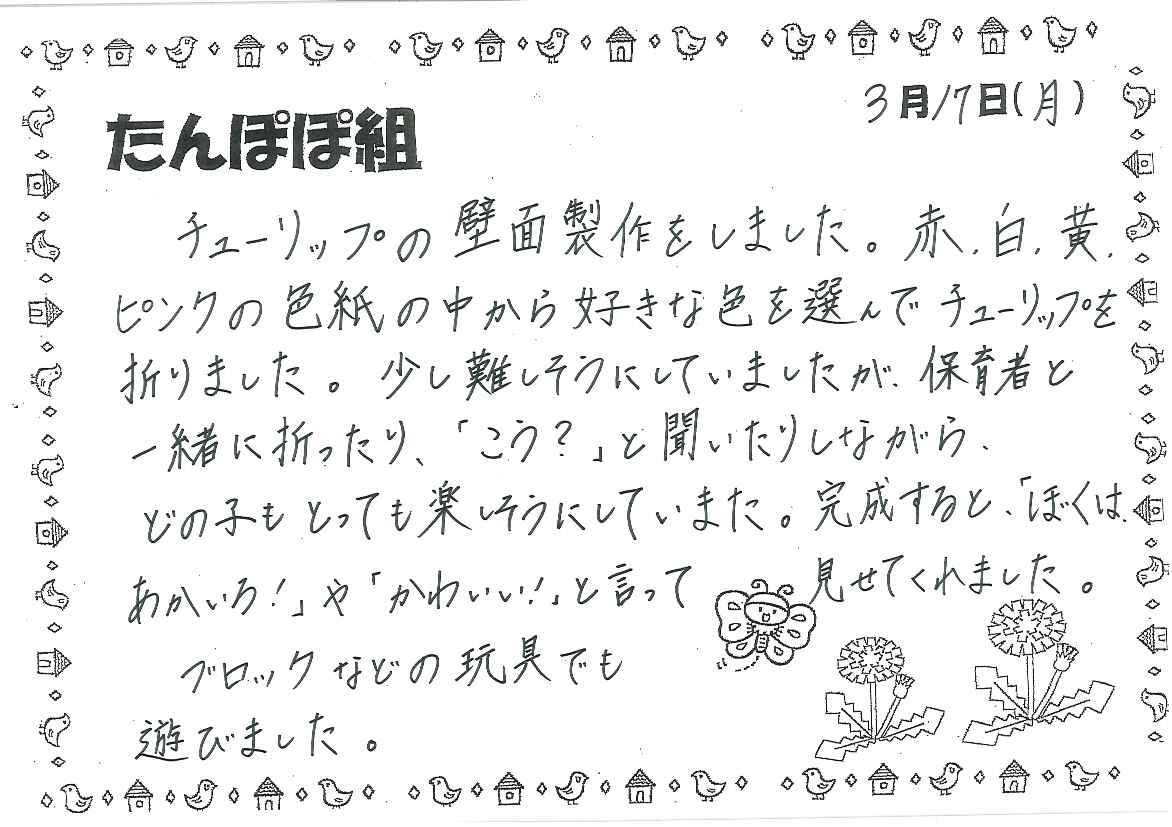 3月17日(月)
たんぽぽ組
チューリップの壁面製作をしました。赤、白、黄、
ピンクの色紙の中から好きな色を選んでチューリップを
折りました。少し難しそうにしていましたが、保育者と
一緒に折ったり、「こう？」と聞いたりしながら、
どの子もとっても楽しそうにしていまた。完成すると、「ぼくは、
あかいろ！」や「かわいい！」と言って見せてくれました。
ブロックなどの玩具でも
遊びました。